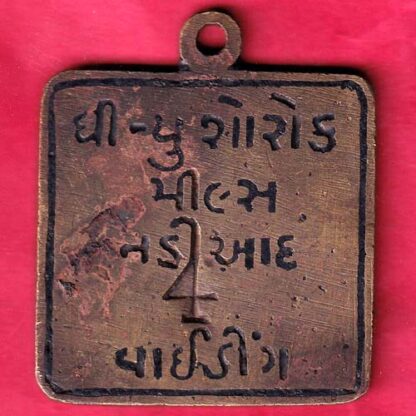 ધી ન્યુ શોરોક
મીલ્સ
નડીઆદ
4
વાઈડીંગ